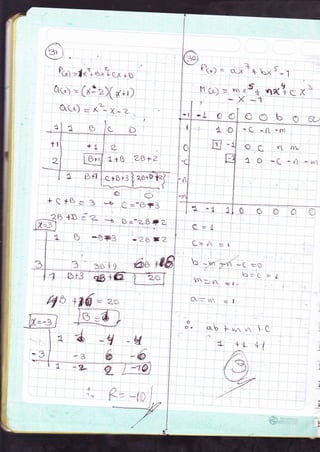 31
P(x) = x³ + Bx² + Cx + D
Q(x) = (x - 2)(x + 1)
Q(x) = x² - x - 2
1 1 B C D
+1 +1 2
2 B+1 1+B 2B+2
1 B+1 C+B+3 2B+D+2
0 0
+ C + B = 3 → C = -B-3
2B + D = -2 → D = -2B-2
x=3
1 B -B-3 -2B-2
3 3 3B+9
1 B+3 20
= 20
B =
x=-3
-3 -3 6 -6
1 -2 2 -10
∴ R = -10
30
P(x) = ax⁷ + bx⁵ - 1
M(x) = mx⁵ + nx⁴ + cx³
- x - 1
-1 -1 0 0 0 b 0 a
1 0 -c -n -m
1 -1 0 c n m
-1 1 0 -c -n -m
-n
-m
1 -1 1 0 0 0 0 0
c = 1
c = n = 1
b - m - n - c = 0
b = c = 1
m = n = 1
a = m = 1
∴ ab + mn + c
1 + 1 + 1
3